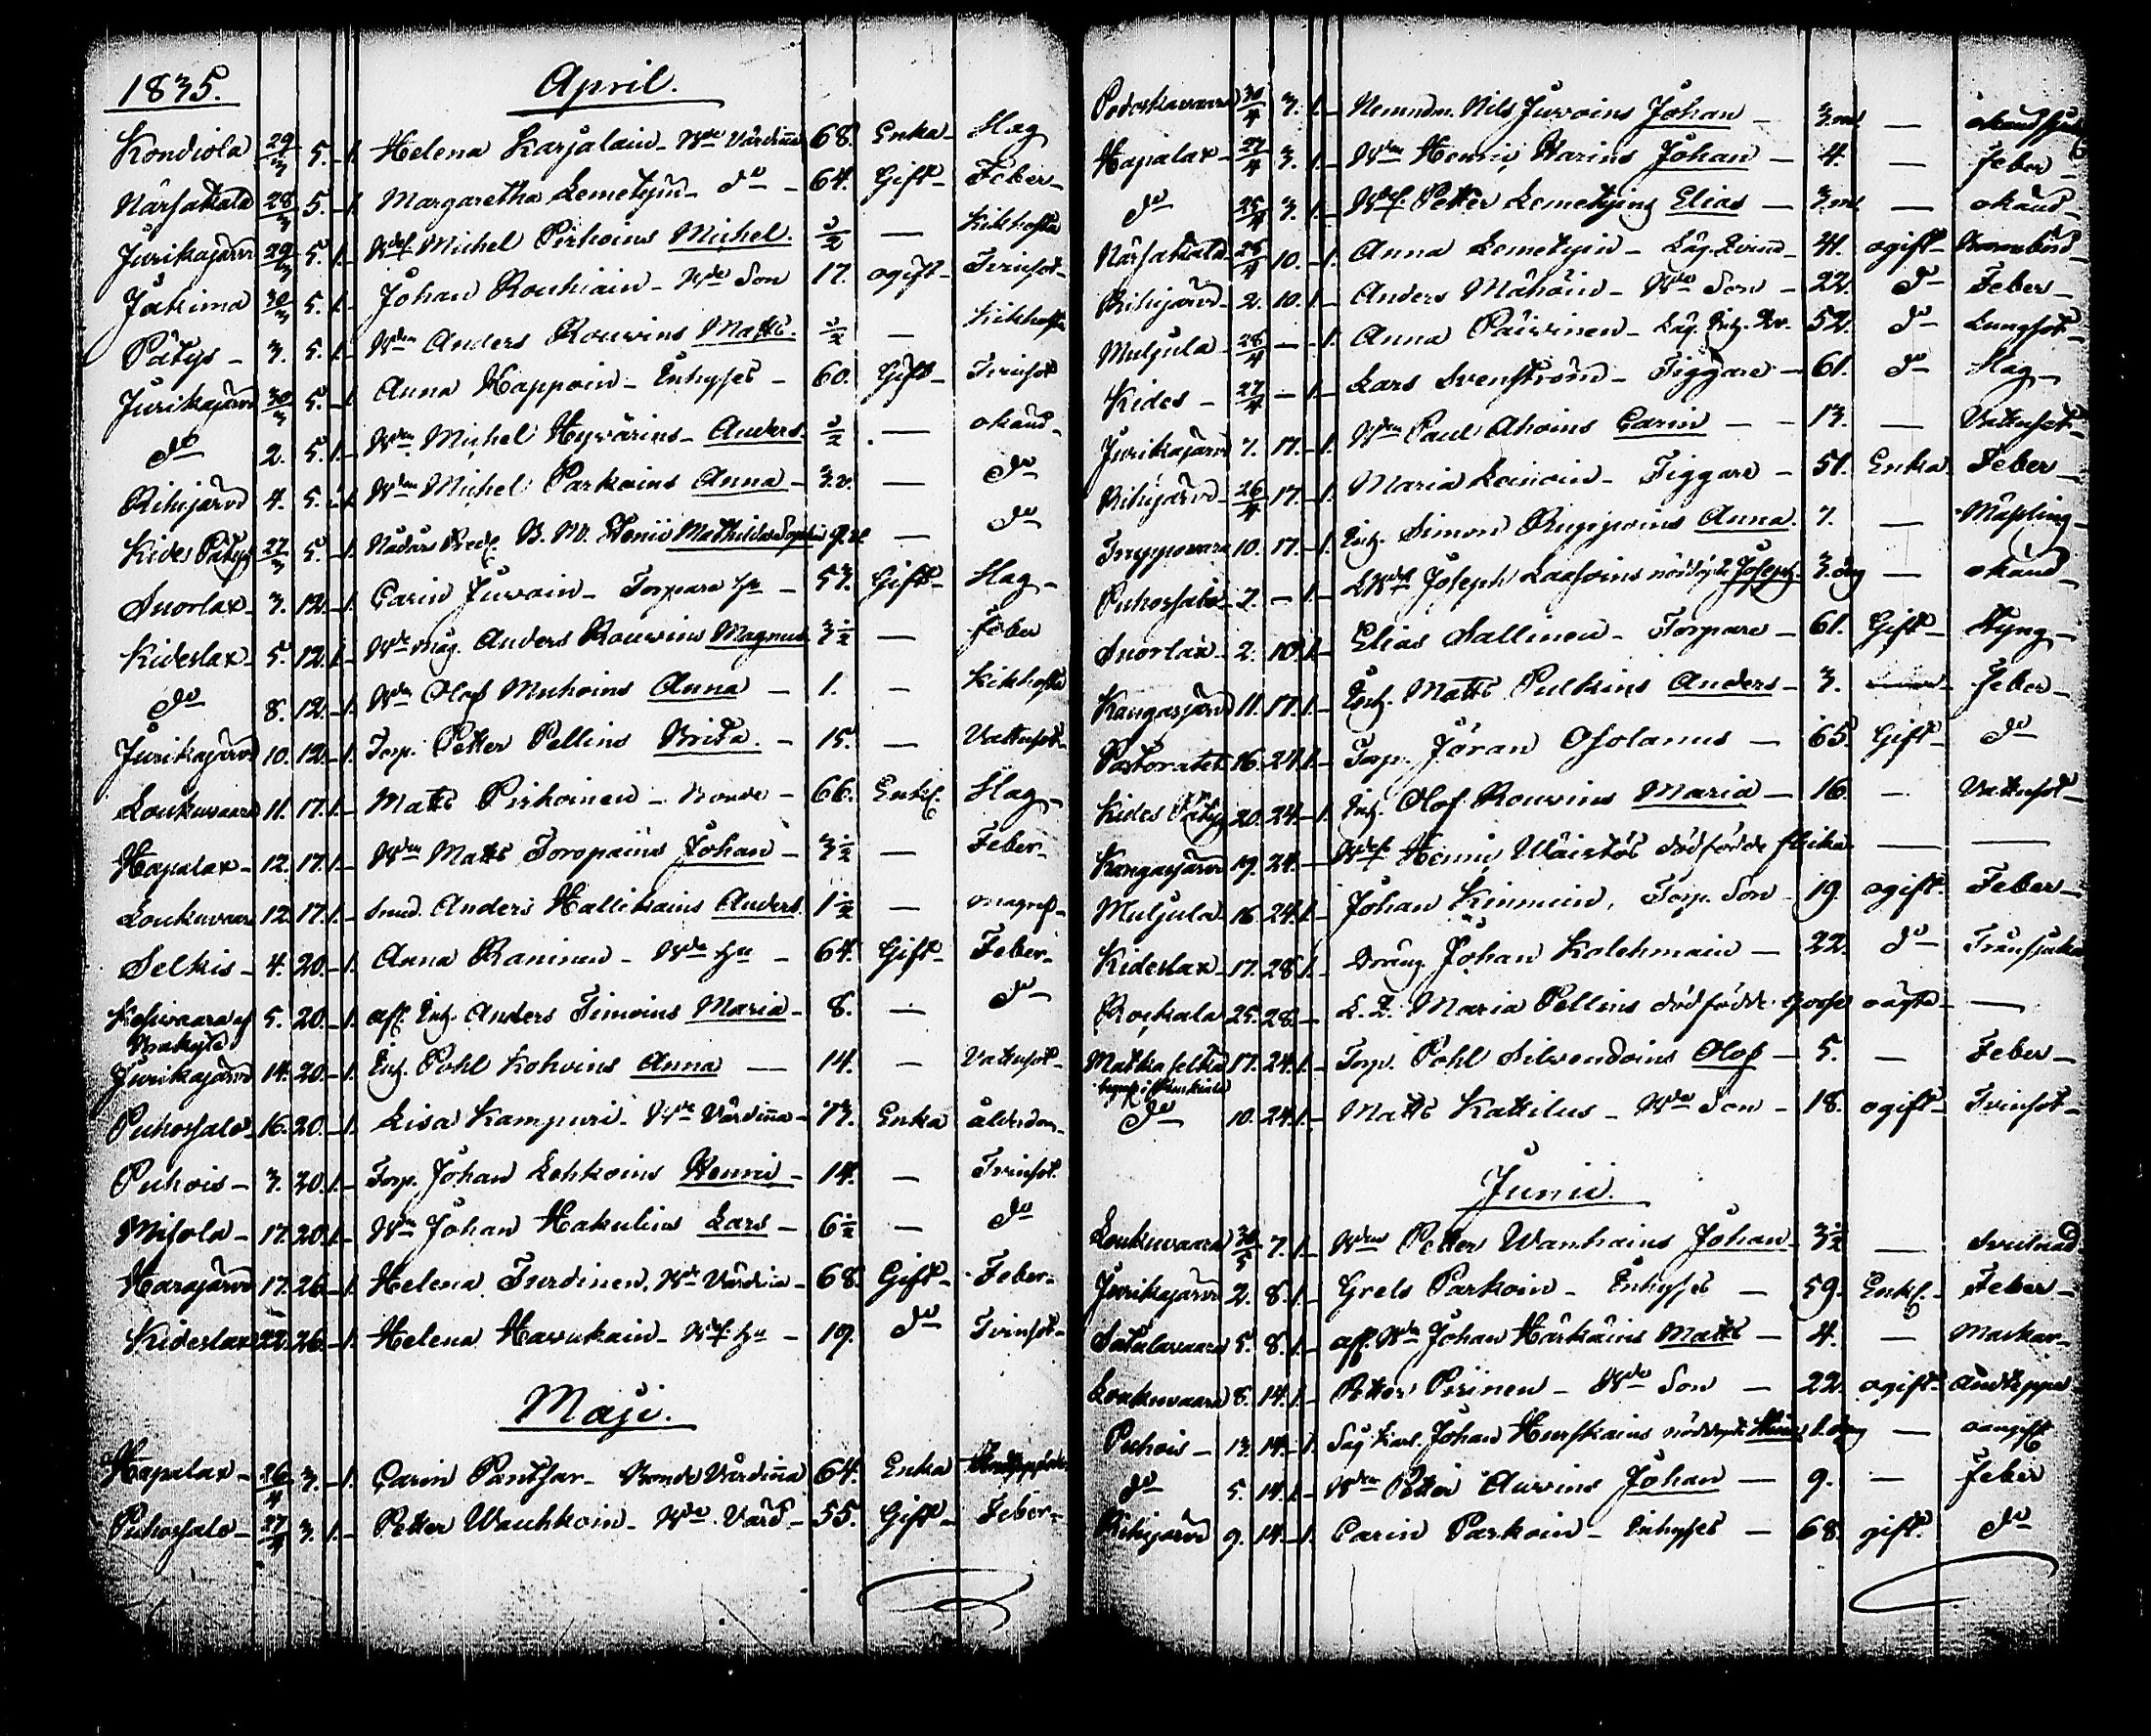 1835. April.
Kondiola 29/3 5. - 1. Helena Karjalain - Wde Värdiña 68. Enka - Slag
Närsakkala 28/3 5. - 1. Margaretha Lemetyin - do - 64. Gift - Feber -
Jurikajärvi 29/3 5. 1. - Michel Pirhoins Michel. 1/2 — Kikhosta
Jakima 30/3 5. 1. - Johan Rouhiain - Wde Son 17. ogift - Tvinsot -
Pätys - 3. 5. 1. - Wdn Anders Rouvins Matts. 1/2 — Kikhosta
Jurikajärvi 30/3 5. - 1. Anna Happoin - Enhyses - 60. Gift - Tvinsot
do 2. 5. 1. - Wdn Michel Hyvärins - Anders. 1/2 — okänd -
Rihijärvi 4. 5. - 1. Wdn Michel Parkoins Anna - 3. v. — do
Kides Pätys 27/3 5. - 1. Nådårs Pred. B. W. Mathilda Sophia — do
Suorlax - 3. 12. - 1. Carin Juvoin - Torpare hu - 57. Gift - Slag -
Kideslax - 5. 12. 1. - Wde måg. Anders Rouvins Magnus 3 1/2 — feber
do 8. 12. - 1. Wdn Olof Muhoins Anna - 1. - Kikhosta
Jurikajärvi 10. 12. - 1. Torp. Petter Pellins Brita. - 15. — Vattusot -
Loukuvaara 11. 17. 1. - Matts Pirhoinen - Bonde - 66. Enkl. Slag -
Hapalax - 12. 17. 1. - Wdn Matts Toropains Johan - 3 1/2 — Feber -
Loukuvaara 12. 17. 1. - Smed. Anders Hallikains Anders. 1 1/2 — magref -
Selkis - 4. 20. - 1. Anna Raninen - Wde hu - 64. Gift - Feber -
Kosivaara af 5. 20. - 1. afl. Enh. Anders Timoins Maria - 8. — do
Jurikajärvi 14. 20. - 1. Enh. Pohl Kohoins Anna — 14. — Vattusot -
Puhossalo - 16. 20. - 1. Lisa Kampuri - Wde Värdiña - 77. Enka ålderdom -
Puhois - 3. 20. 1. - Torp. Johan Lehkoins Henric - 14. — Tvinsot
Misola - 17. 20. 1. - Wdn Johan Hakulins Lars - 6 1/2 — do
Harajärvi 17. 26. - 1. Helena Turdinen, Wde Värdiña - 68. Gift - Feber -
Kideslax 22. 26. - 1. Helena Havukain - hu - 19. do Tvinsot -
Maji.
Hapalax - 26/4 3. - 1. Carin Pantsar - Bonde Värdiña 64. Enka
Puhossalo - 27/4 3. 1. - Petter Wauhkoin - Wde Värd - 55. Gift - Feber -
30/4 3. 1. - Nemndm. Nils Juvoins Johan - 3. m. —
Hapalax - 27/4 3. 1. - Wdn Henric Harins Johan - 4. — feber -
do 25/4 3. 1. - Petter Lemetyins Elias — 3. m. — okänd -
Närsakkala - 25/4 10. - 1. Anna Lemetyin - 41. ogift -
Rihijärvi - 2. 10. 1. - Anders Mähöin - Wde Son - 22. do Feber -
Muljula - 28/4 - - 1. Anna Päivinen - 52. do Lungsot -
Kides - 27/4 - 1. - Lars Svenström - Tiggare - 61. do Slag -
Jurikajärvi 7. 17. - 1. Wdn Paul Ahoins Carin - - 13. — Vattusot -
Rihijärvi - 26/4 17. - 1. Maria Leinoin - Tiggare - 51. Enka Feber -
10. 17. - 1. Enh. Simon Ruppoins Anna. 7. — Mässling -
Puhossalo - 7. - 1. - Joseph Laasoins nöddöpt Joseph - 3. dag — okänd -
Suorlax - 2. 10. 1. - Elias Sallinen - Torpare - 61. Gift - Styng -
Kangasjärvi 11. 17. 1. - Enh. Matts Pulkins Anders - 3. feber -
Pastoratet 16. 24. 1. - Torp. Jöran Osolanus — 65. Gift - do
Kides Pätys 20. 24. - 1. Enh. Olof Rouvins Maria — 16. — Vattusot -
Kangasjärvi 19. 24. - Henric Wäistös dödfödde flicka — —
Muljula 16. 24. 1. - Johan Kinnuin, Torp. Son - 19. ogift - Feber -
Kideslax 17. 28. 1. - Dräng Johan Kolehmain — 22. do
Rockala 25. 28. - L. Q. Maria Pellins dödfödde gosse oägta - —
Matkaselkä 17. 24. 1. - Torp. Pohl Silvendoins Olof — 5. — Feber -
do 10. 24. 1. - Matts Kattilus - Wde Son - 18. ogift - Tvinsot -
Junii.
Loukuvaara 30/5 7. 1. - Wdn Petter Wanhains Johan - 3 1/2 —
Jurikajärvi 2. 8. 1. - Grels Parkoin - Enhyses — 59. Enkl. - Feber -
Satulavaara 5. 8. 1. - afl. Wdn Johan Härkäins Matts — 4. — Maskar -
Loukuvaara 8. 14. 1. - Petter Pirinen - Wde Son — 22. ogift - andtäppa
Puhois - 13. 14. - 1. Johan Hurskains nöddöpt 1. dag — oangift
do 5. 14. 1. - Wdn Petter Auvins Johan — 9. — feber
Rihijärvi 9. 14. - 1. Carin Parkoin - Enhyses — 68. gift. do